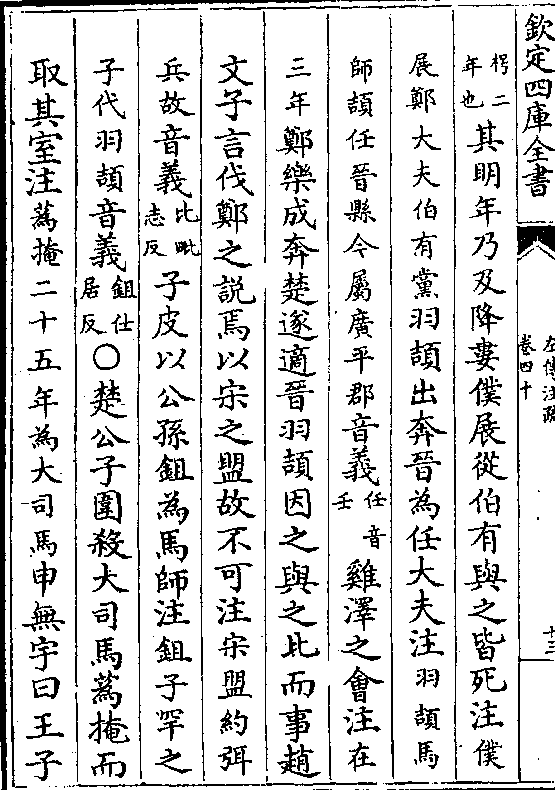 欽定四庫全書
左傳注疏
卷四十
十三
枵二
年也其明年乃及降婁僕展從伯有與之皆死注僕
展鄭大夫伯有黨羽頡出奔晉為任大夫注羽頡馬
師頡任晉縣今屬廣平郡音義任音
壬雞澤之會注在
三年鄭樂成奔楚遂適晉羽頡因之與之比而事趙
文子言伐鄭之説焉以宋之盟故不可注宋盟約弭
兵故音義比毗
志反子皮以公孫鉏為馬師注鉏子罕之
子代羽頡音義鉏仕
居反○楚公子圍殺大司馬蒍掩而
取其室注蒍掩二十五年為大司馬申無宇曰王子